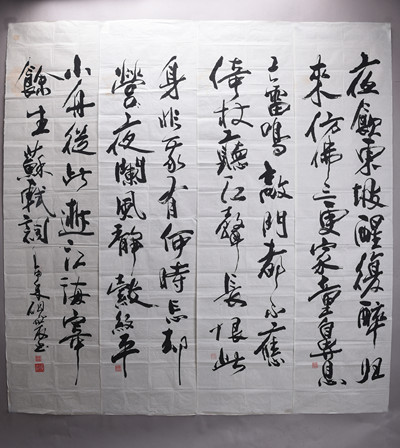 夜飲東坡醒復醉归
來仿佛三更家童鼻息
已雷鳴敲門都不應
倚杖聽江聲長恨此
身非我有何時忘却
營〻夜瀾風靜縠紋平
小舟從此逝江海寄
餘生蘇軾詞